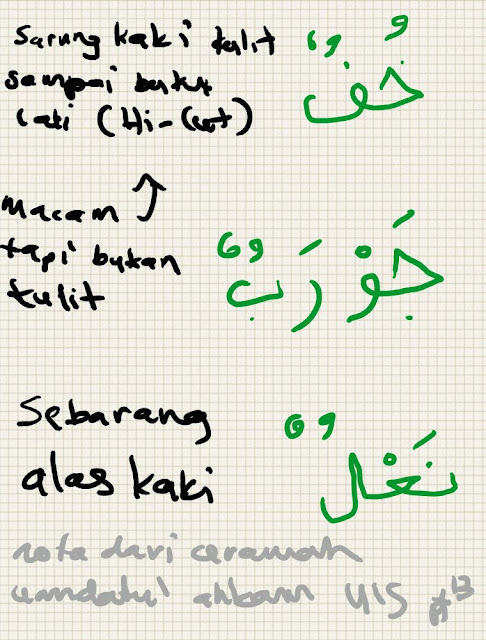 Sarung kaki kulit خُفٌّ
sampai buku
lali (Hi-Cut)
macam ↑
tapi bukan جَوْرَبٌ
kulit
Sebarang
alas kaki نَعْلٌ
nota dari ceramah
umdatul ahkam UIS #13